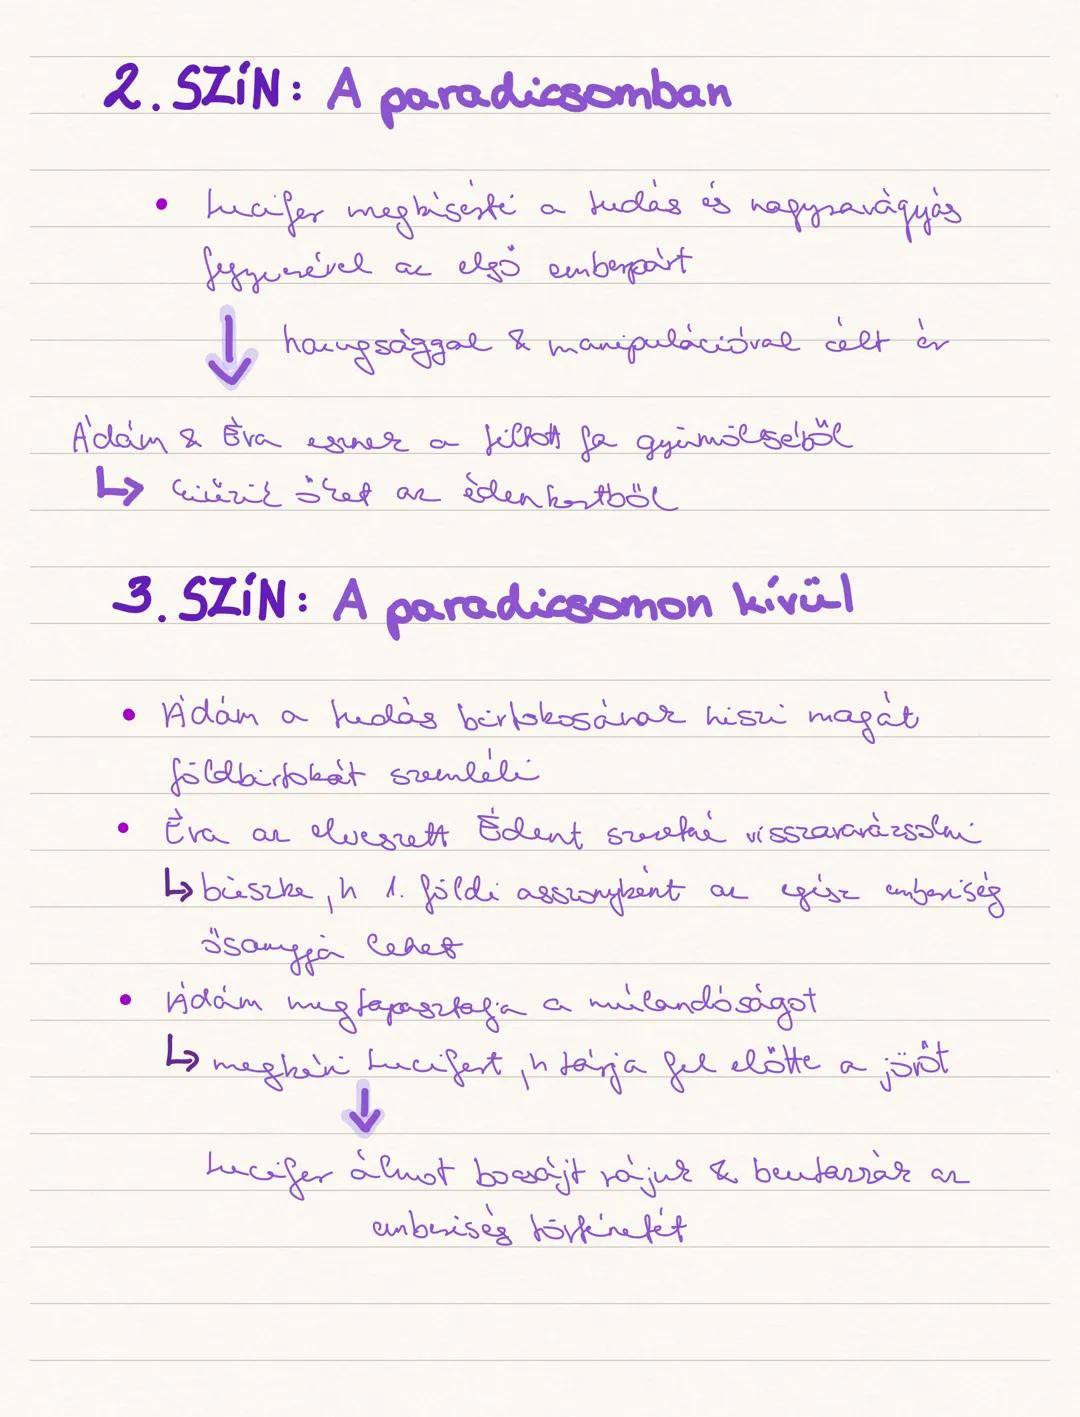 2. SZÍN: A paradicsomban
• Lucifer megkísérti a tudás és nagyravágyás
fegyverével az első emberpárt
↓ hazugsággal & manipulációval célt ér
Ádám & Éva esznek a tiltott fa gyümölcséből
↳ kiűzik őket az édenkertből
3. SZÍN: A paradicsomon kívül
• Ádám a tudás birtokosának hiszi magát
földbirtokát szemléli
• Éva az elveszett Édent szeretné visszavarázsolni
↳ büszke, h 1. földi asszonyként az egész emberiség
ősanyja lehet
• Ádám megtapasztalja a múlandóságot
↳ megkéri Lucifert, h tárja fel előtte a jövőt
↓
Lucifer álmot bocsájt rájuk & bemutassák az
emberiség történetét